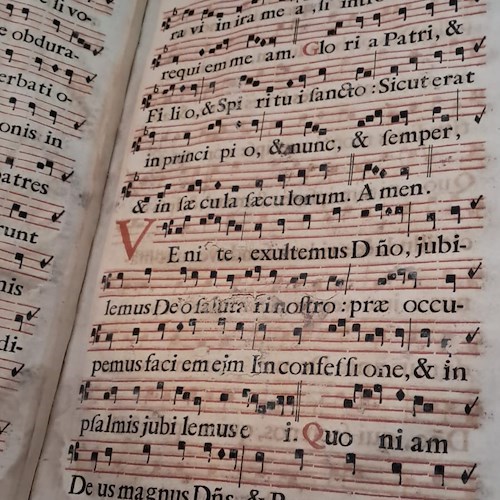 e li vo-
e obdura-
erbati o-
onis in
patres
runt
nis
di-
ra vi in ira me a, si intro
requi em me am. Glo ri a Patri, &
Fi li o, & Spi ri tu i ſancto : Sicut erat
in princi pi o, & nunc, & ſemper,
& in ſæ cu la ſæcu lorum. A men.
VE ni te, exultemus D ño, jubi-
lemus De o ſaluta ri noſtro : præ occu-
pemus faci em ejm In confeſſi one, & in
pſalmis jubi lemus e i. Quo ni am
De us magnus Dñs, &